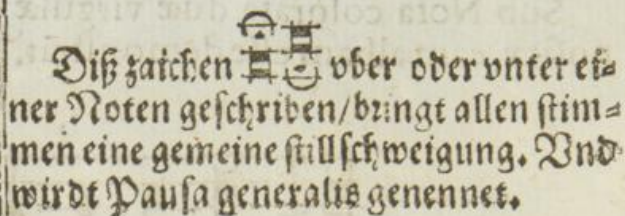 Diß zaichen vber oder vnter ei⸗
ner Noten geschriben/bringt allen stim⸗
men eine gemeine stillschweigung. Vnd
wirdt Pausa generalis genennet.